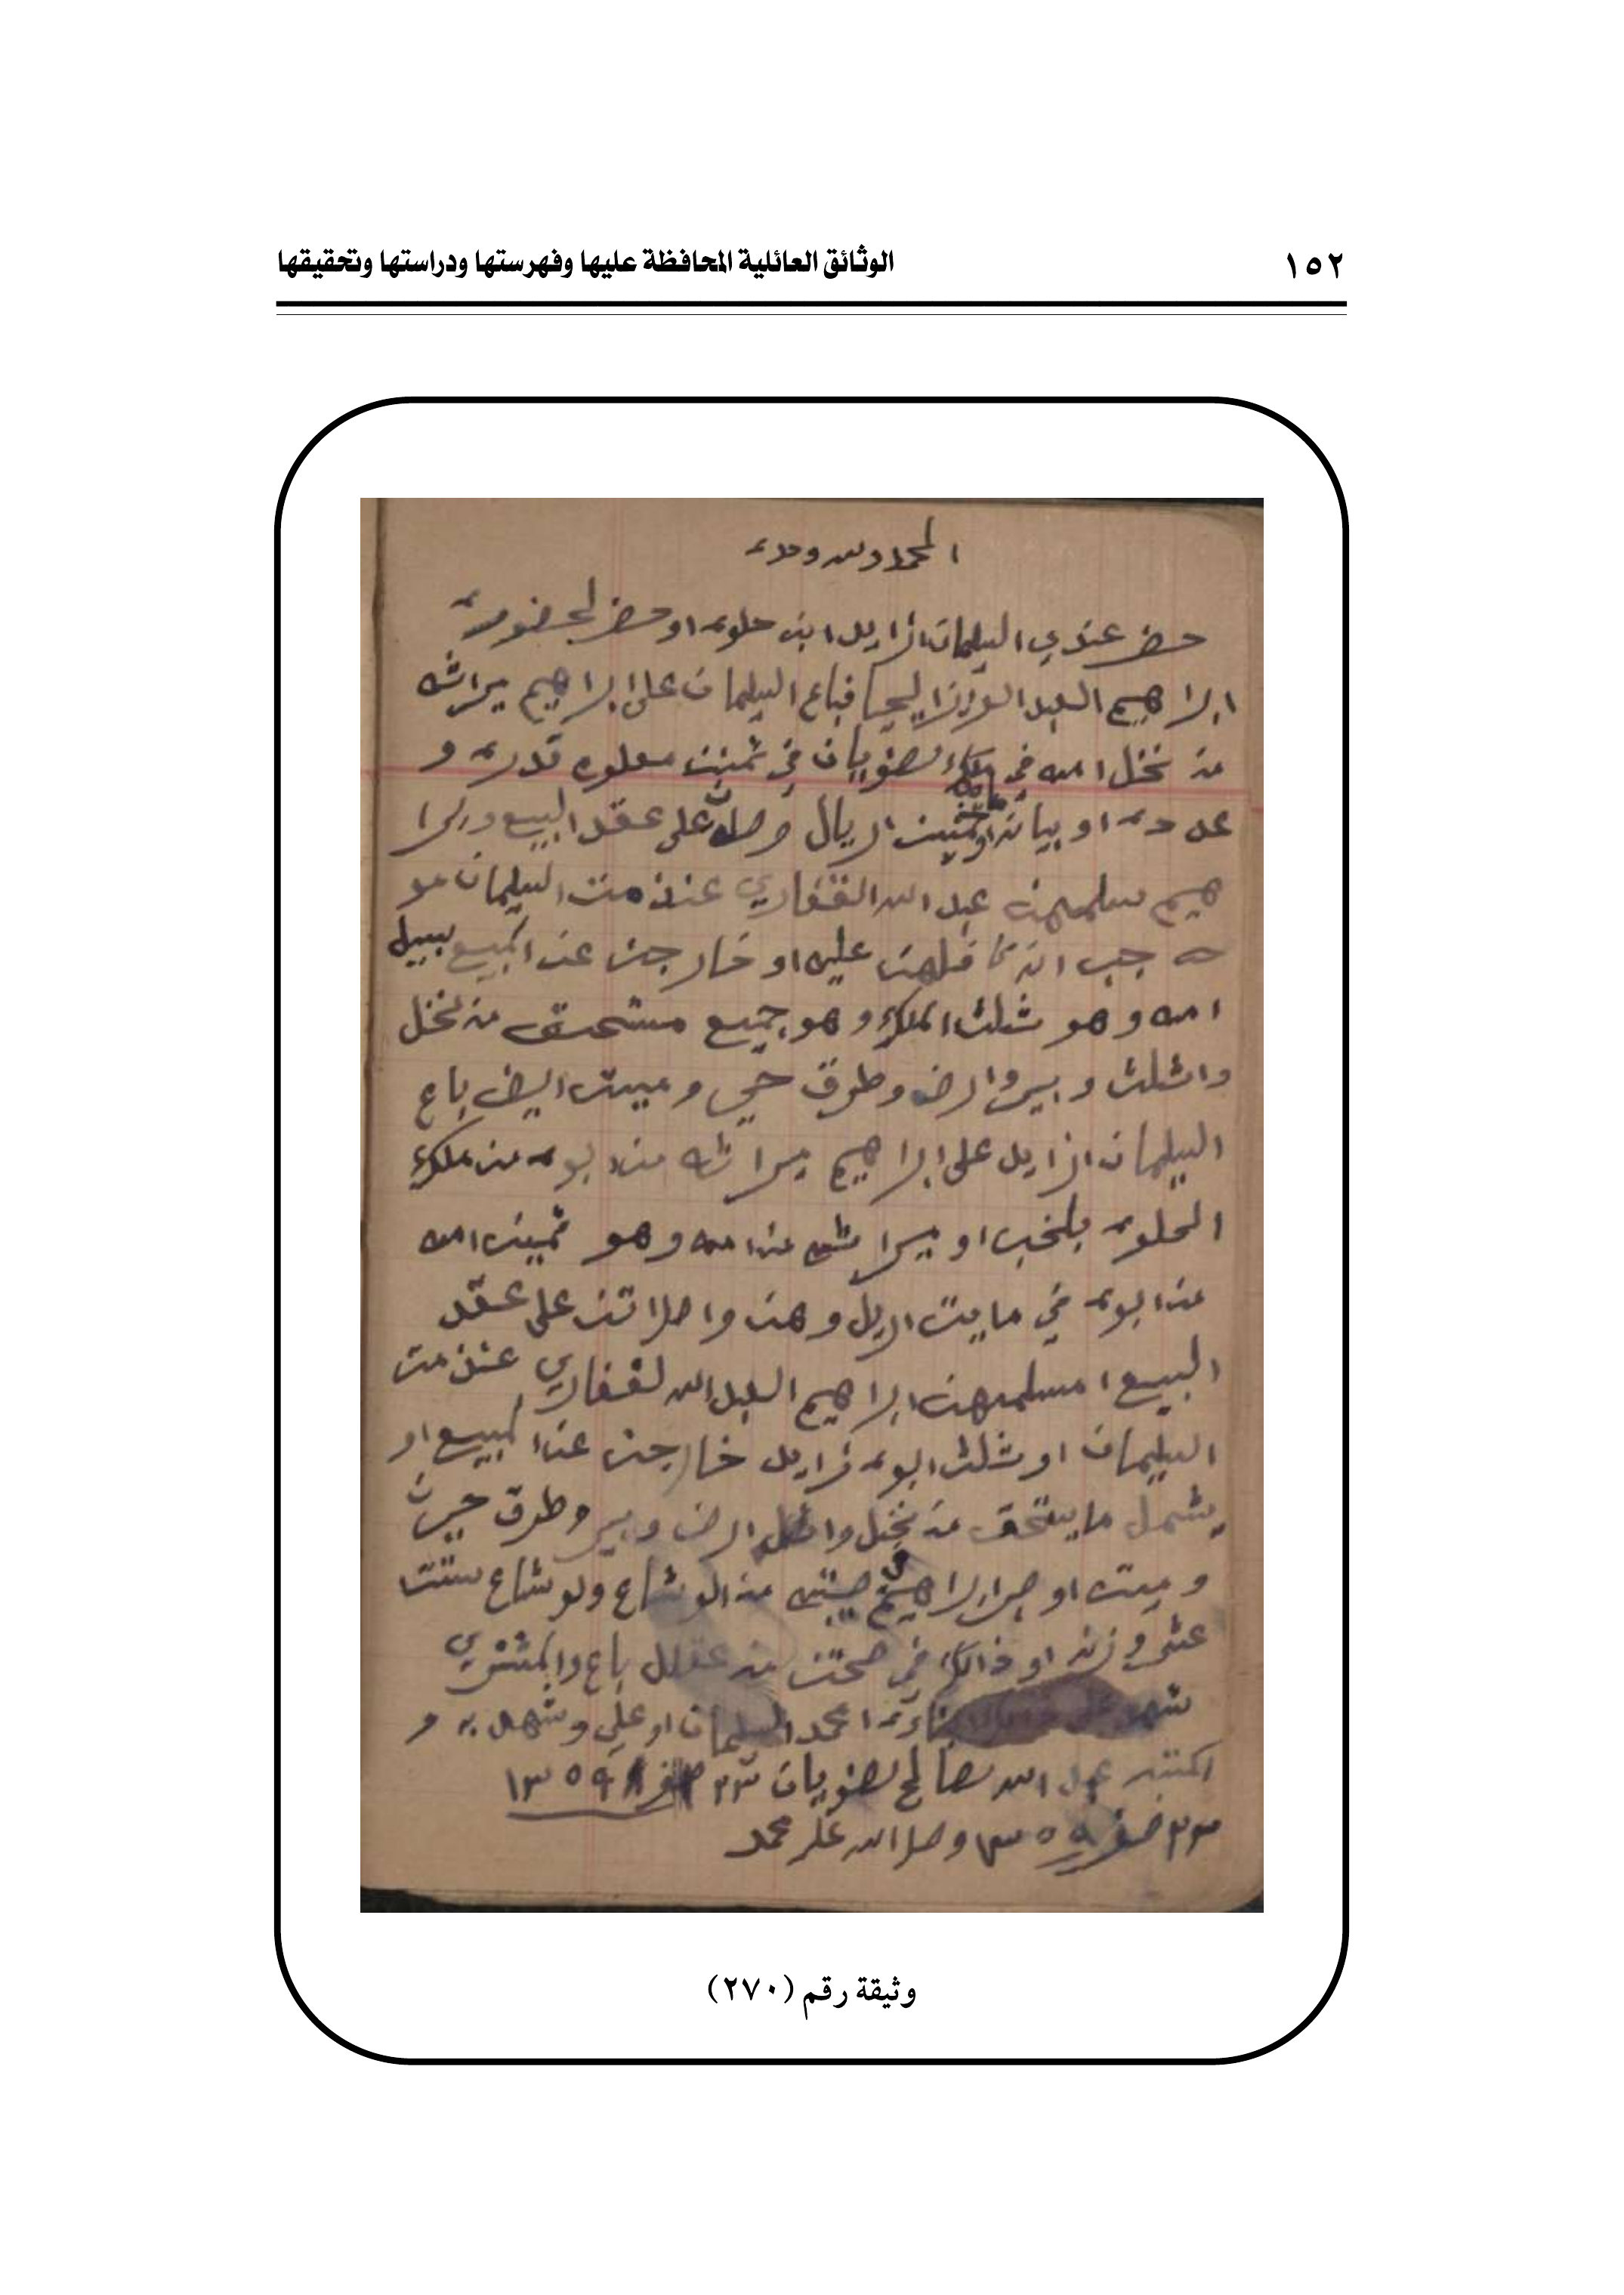 ١٥٢
الوثائق العائلية المحافظة عليها وفهرستها ودراستها وتحقيقها
الحمد لله وحده
حضر عندي السليمان ابن حلوه او حضر لحضوره
ابراهيم العبد فباع السليمان على ابراهيم ميراثه
من نخل امه في ملك لضويان في ثمنن معلوم قدره و
عدده او بيانه الريال وصلن على عقد البيع وبرا
هيم سلمهن عبد الله القفاري عن ذمت السليمان مو
جب عليه او خارجن عن المبيع سبيل
امه وهو ثلث الملك وهو جميع مستحق من نخل
واثلث وبير وارض وطرق حي وميت ايض باع
السليمان على ابراهيم ميراثه من ابوه من ملك
الحلوه بلخب او ميراث من امه وهو ثمينت امه
من ابوه في مايت اريل وهن واصلاتن على عقد
البيع امسلمهن ابراهيم العبد الله لقفاري عن ذمت
السليمان او ثلث ابوه خارجن عن المبيع او
يشمل ما يستحق من نخل واثل ارض وبير وطرق حين
وميت او ابراهيم من الوشاع ولوشاع ستت
عشر او ذالك في صحتن من عقل باع والمشتري
شهد محمد السليمان او علي وشهد به و
اكتبه عبد الله لصالح لضويان ٢٣ صفر ١٣٥٩
٢٣ صفر ١٣٥٩ وصلى الله على محمد
وثيقة رقم (٢٧٠)